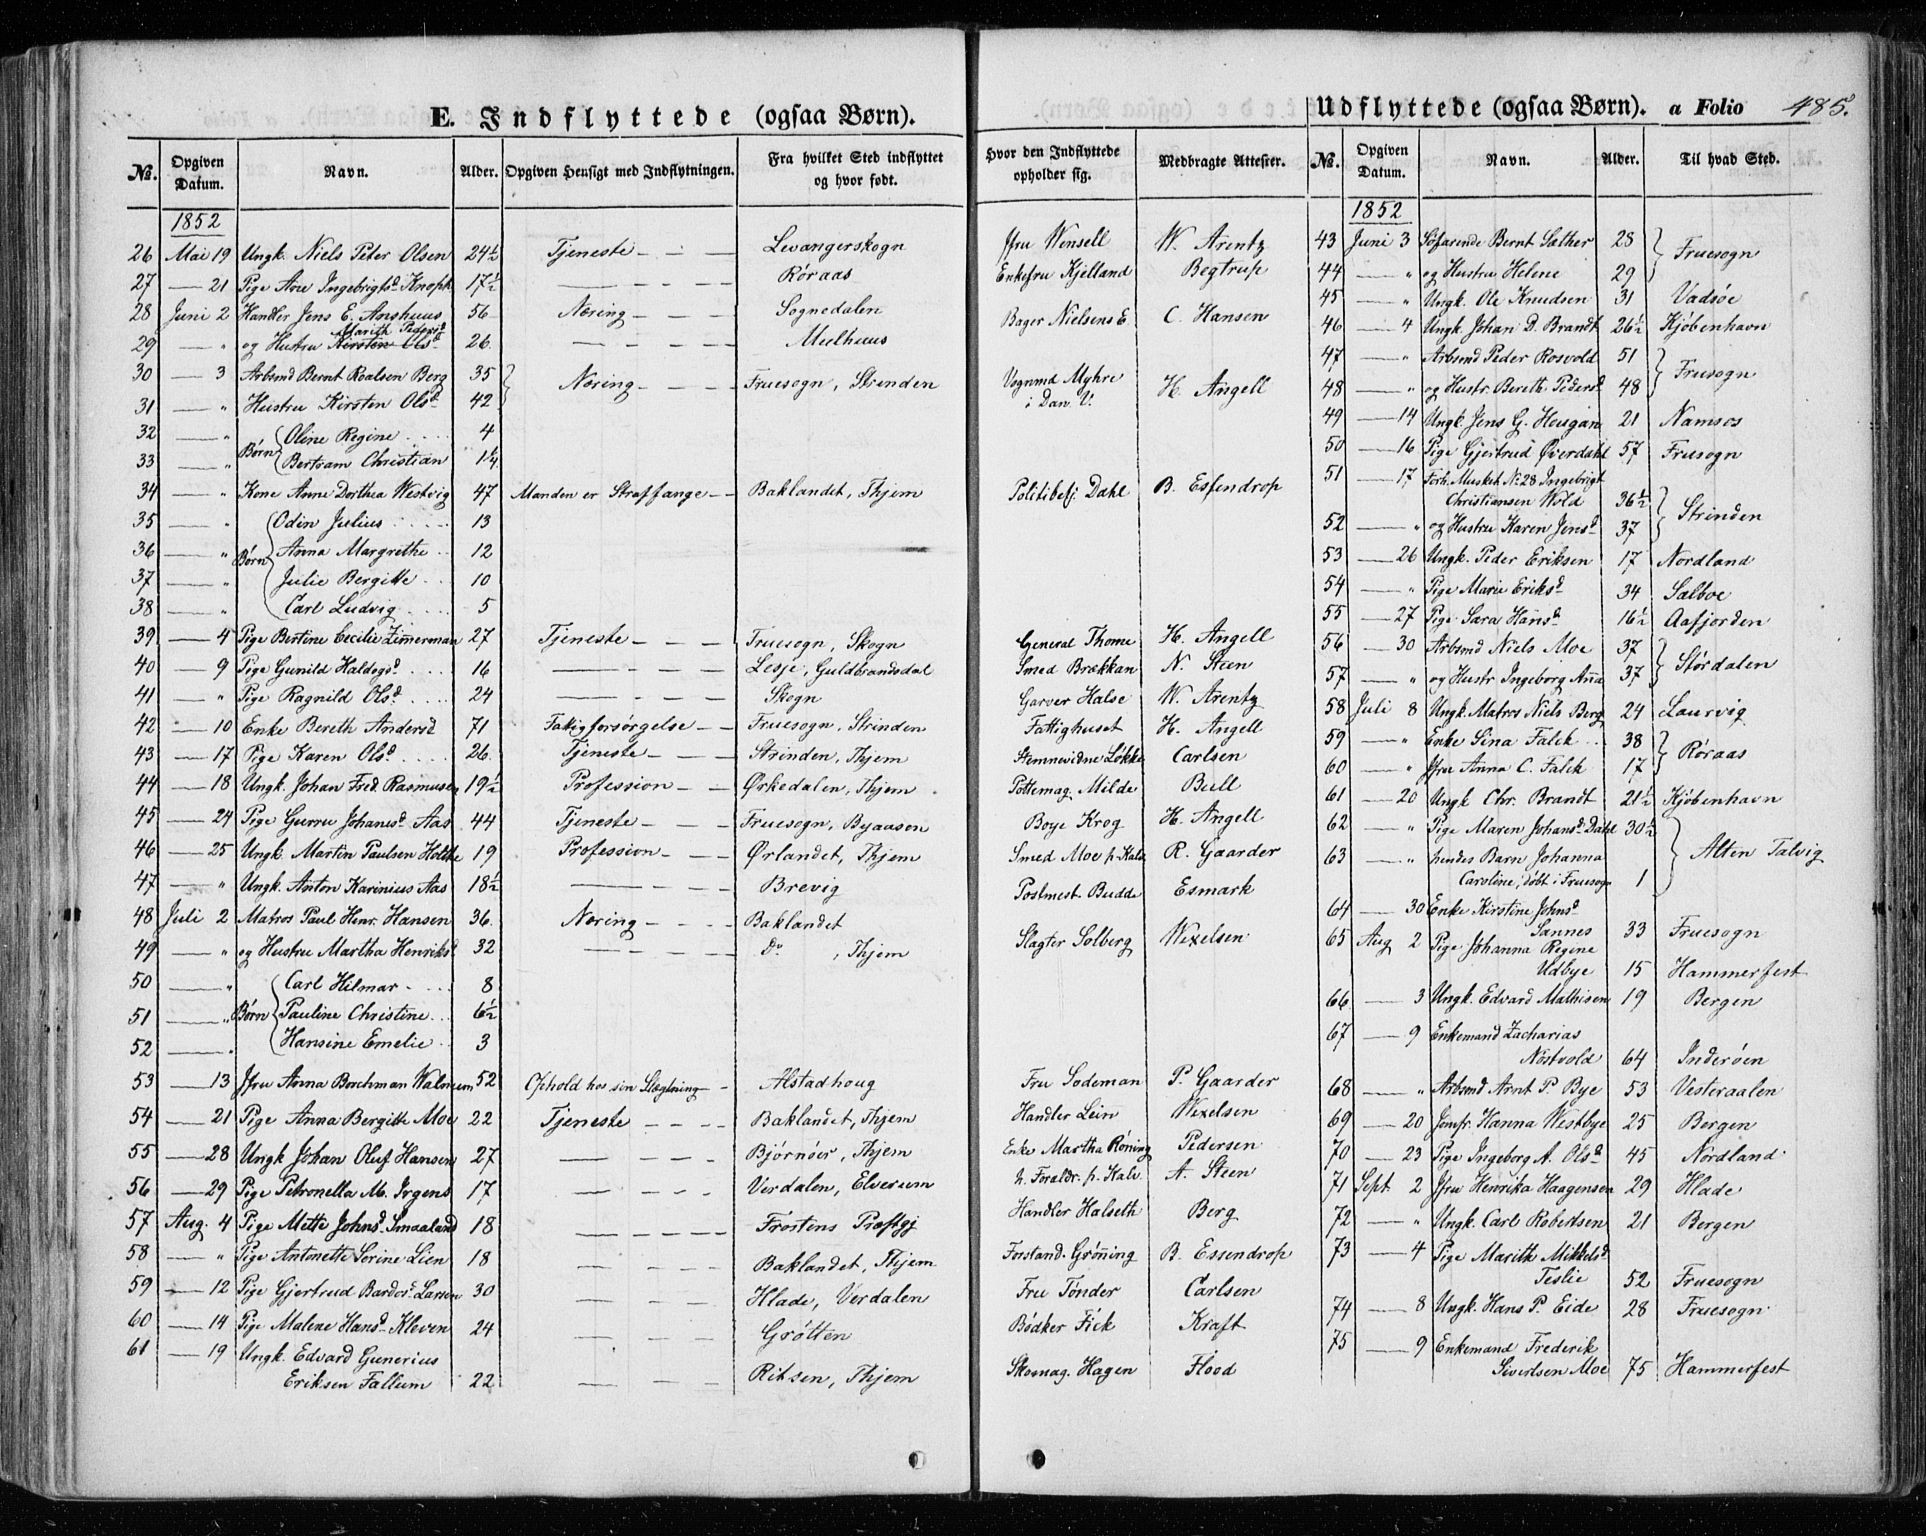 E. Indflyttede (ogsaa Børn).
No. | Opgiven Datum. | Navn. | Alder. | Opgiven Hensigt med Indflytningen. | Fra hvilket Sted indflyttet og hvor født. | Hvor den Indflyttede opholder sig. | Medbragte Attester.
1852
26 Mai 19 Ungk. Niels Peter Olsen 24½ Tjeneste Levangerskogn Jfru Wensell W. Arentz
27 — 21 Pige Ane Ingebrigtsd. Knoph 17½ — Røraas Enkefru Kjelland Begtrup
28 Juni 2 Handler Jens E. Anshuus 56 Næring Sognedalen Bager Nielsens E C. Hansen
Marith Pedersd.
29 — " og Hustru Kirsten Olsd. 26 — Melhuus
30 — 3 Arbsmd Bernt Roalsen Berg 35 } Næring Fruesogn, Strinden Vognmd Myhre i Dan. V. H. Angell
31 — " Hustru Kirsten Olsd. 42
32 — " Børn { Oline Regine 4
33 — " Bertram Christian 1¼
34 — " Kone Anne Dorthea Westvig 47 Manden er Straffange Baklandet, Thjem Politibetj Dahl B. Esfendrop
35 — " Børn { Odin Julius 13
36 — " Anna Margrethe 12
37 — " Julie Bergitte 10
38 — " Carl Ludvig 5
39 — 4 Pige Bertine Cecilie Zimerman 27 Tjeneste Fruesogn, Skogn General Thome H. Angell
40 — 9 Pige Gunild Haldogsd. 16 — Lesje, Guldbrandsdal Smed Brækkan N. Steen
41 — " Pige Ragnild Olsd. 24 — Skogn Garver Halse W. Arentz
42 — 10 Enke Bereth Andersd 71 Fattigforsørgelse Fruesogn, Strinden Fattighuset H. Angell
43 — 17 Pige Karen Olsd. 26 Tjeneste Strinden, Thjem Stemnevidne Løkke Carlsen
44 — 18 Ungk. Johan Fred. Rasmusen 19½ Profession Ørkedalen, Thjem Pottemag. Milde Bull
45 — 24 Pige Gurru Johanesd. Aas 44 Tjeneste Fruesogn, Byaasen Boye Krog H. Angell
46 — 25 Ungk. Martin Paulsen Holthe 19 Profession Ørlandet, Thjem Smed Moe p. Kalv. R. Gaarder
47 — " Ungk. Anton Karinius Aas 18½ — Brevig Postmest. Budde Esmark
48 Juli 2 Matros Paul Henr. Hansen 36 Næring Baklandet
49 — " og Hustru Martha Henriksd. 32 — Do, Thjem Slagter Solberg Wexelsen
50 — " Børn { Carl Hilmar 8
51 — " Pauline Christine 6½
52 — " Hansine Emelie 3
53 — 13 Jfru Anna Borchman Walnum 52 Ophold hos sin Slægtning Alstadhoug Fru Sodeman P. Gaarder
54 — 21 Pige Anna Bergitte Moe 22 Tjeneste Baklandet, Thjem Handler Lein Wexelsen
55 — 28 Ungk Johan Oluf Hansen 27 — Bjørnøer, Thjem Enke Martha Røning Pedersen
56 — 29 Pige Petronella M. Jrgens 17 — Verdalen, Elverum h. Foraldr. p. Kalv. A. Steen
57 Aug. 4 Pige Mette Johnsd. Smaaland 18 — Frostens Præstgj Handler Halseth Berg
58 — " Pige Antonette Serine Lien 18 — Baklandet, Thjem Forstand. Grønning B. Essendrop
59 — 12 Pige Gjertrud Bardosd. Larsen 30 — Hlade, Verdalen Fru Tønder Carlsen
60 — 14 Pige Malene Hansd. Kleven 24 — Grøtten Bødker Fick Kraft
61 — 19 Ungk. Edvard Gunerius
Eriksen Fallum 22 — Ritsen, Thjem Skomag. Hagen Flood
Udflyttede (ogsaa Børn). a Folio 485.
No. | Opgiven Datum. | Navn. | Alder. | Til hvad Sted.
1852
43 Juni 3 Søfarende Bernt Sæther 28 } Fruesogn
44 — " og Hustru Helene 29
45 — " Ungk. Ole Knudsen 31 Vadsøe
46 — 4 Ungk. Johan D. Brandt 26½ Kjøbenhavn
47 — " Arbsmd Peder Rosvold 51 } Fruesogn
48 — " og Hustr. Bereth Pedersd. 48
49 — 14 Ungk. Jens G. Hougan 21 Namsos
50 — 16 Pige Gjertrud Øverdahl 57 Fruesogn
51 — 17 Forh. Musket No. 28 Ingebrigt
Christiansen Wold 36½ } Strinden
52 — " og Hustru Karen Jensd. 37
53 — 26 Ungk. Peder Eriksen 17 Nordland
54 — " Pige Marie Eriksd. 34 Salboe
55 — 27 Pige Sara Hansd. 16½ Aafjorden
56 — 30 Arbsmd Niels Moe 37 } Størdalen
57 — " og Hustr Ingeborg Anna 37
58 Juli 8 Ungk. Matros Niels Berg 24 Laurvig
59 — " Enke Sina Falck 38 } Røraas
60 — " Jfru Anna C. Falck 17
61 — 20 Ungk Chr. Brandt 21½ Kjøbenhavn
62 — " Pige Maren Johansd. Dahl 30½ } Alten Talvig
63 — " hendes Barn Johanna
Caroline, døbt i Fruesogn 1
64 — 30 Enke Kirstine Johnsd.
Sannes 33 Fruesogn
65 Aug 2 Pige Johanna Regine
Udbye 15 Hammerfest
66 — 3 Ungk. Edvard Mathisen 19 Bergen
67 — 9 Enkemand Zacharias
Nostvold 64 Inderøen
68 — " Arbsmd Arnt P. Bye 53 Vesteraalen
69 — 20 Jomfr. Hanna Westbye 25 Bergen
70 — 23 Pige Ingeborg A. Olsd. 45 Nordland
71 Sept. 2 Jfru Henrika Haagensen 29 Hlade
72 — " Ungk. Carl Robertsen 21 Bergen
73 — 4 Pige Marith Mikkelsd.
Teslie 52 Fruesogn
74 — 8 Ungk. Hans P. Eide 28 Fruesogn
75 — 9 Enkemand Frederik
Sivertsen Moe 75 Hammerfest